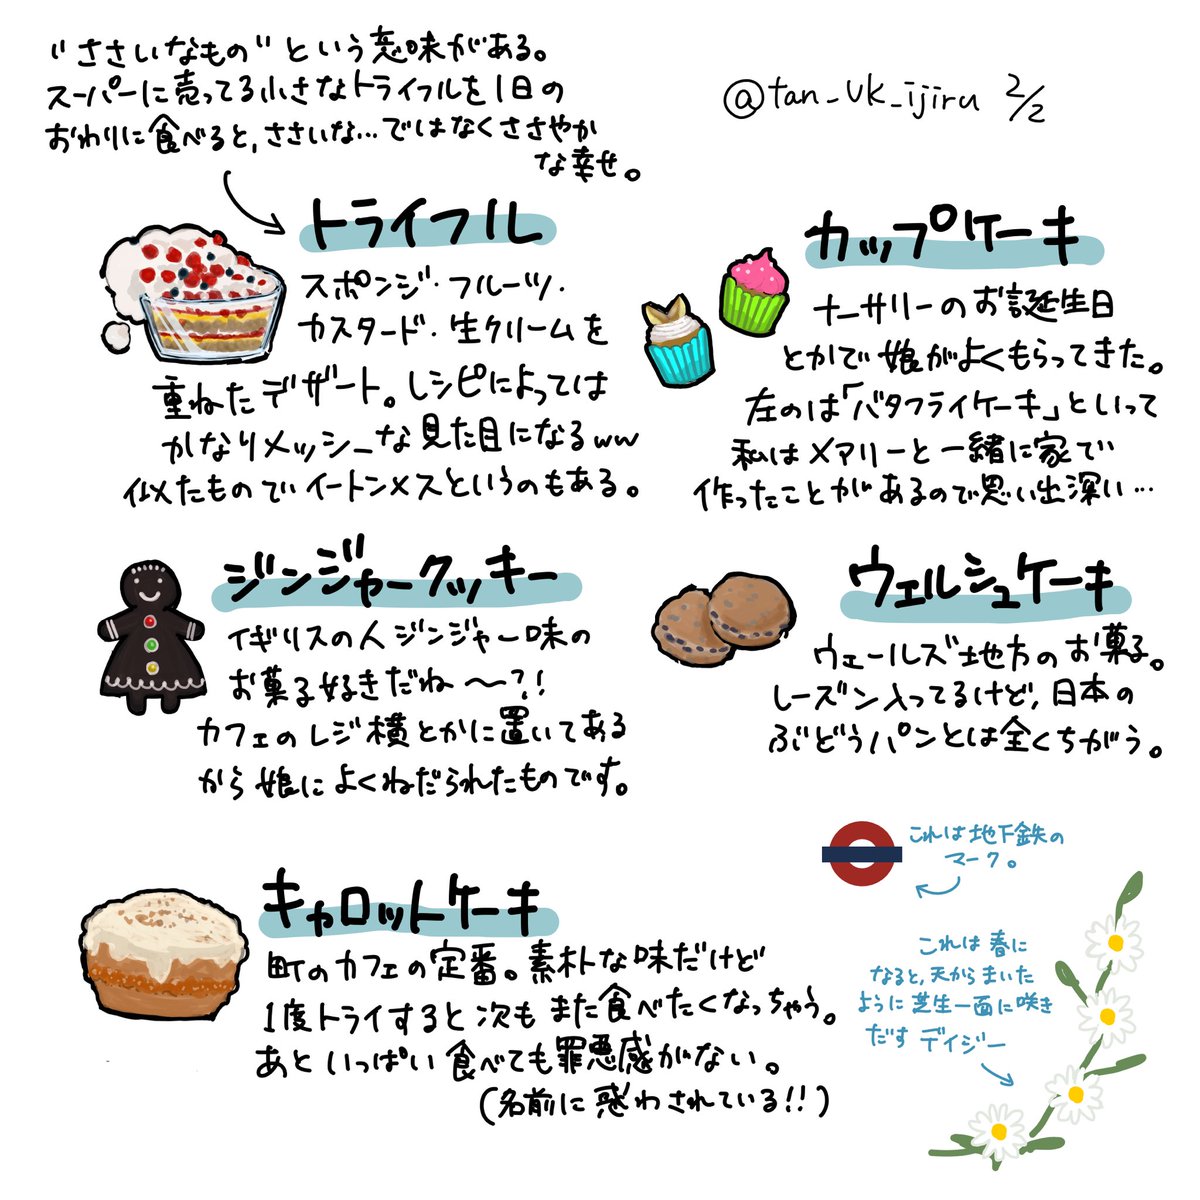 "ささいなもの"という意味がある。
スーパーに売ってる小さなトライフルを1日の
おわりに食べると、ささいな…ではなくささやか
な幸せ。
@tan_uk_ijiru 2/2
トライフル
スポンジ・フルーツ・
カスタード・生クリームを
重ねたデザート。レシピによっては
かなりメッシーな見た目になるww
似たものでイートンメスというのもある。
カップケーキ
ナーサリーのお誕生日
とかで娘がよくもらってきた。
左のは「バタフライケーキ」といって
私はメアリーと一緒に家で
作ったことがあるので思い出深い…
ジンジャークッキー
イギリスの人ジンジャー味の
お菓子好きだね〜?!
カフェのレジ横とかに置いてある
から娘によくねだられたものです。
ウェルシュケーキ
ウェールズ地方のお菓子。
レーズン入ってるけど、日本の
ぶどうパンとは全くちがう。
キャロットケーキ
町のカフェの定番。素朴な味だけど
1度トライすると次もまた食べたくなっちゃう。
あといっぱい食べても罪悪感がない。
(名前に惑わされている!!)
これは地下鉄の
マーク。
これは春に
なると、天からまいた
ように芝生一面に咲き
だすデイジー